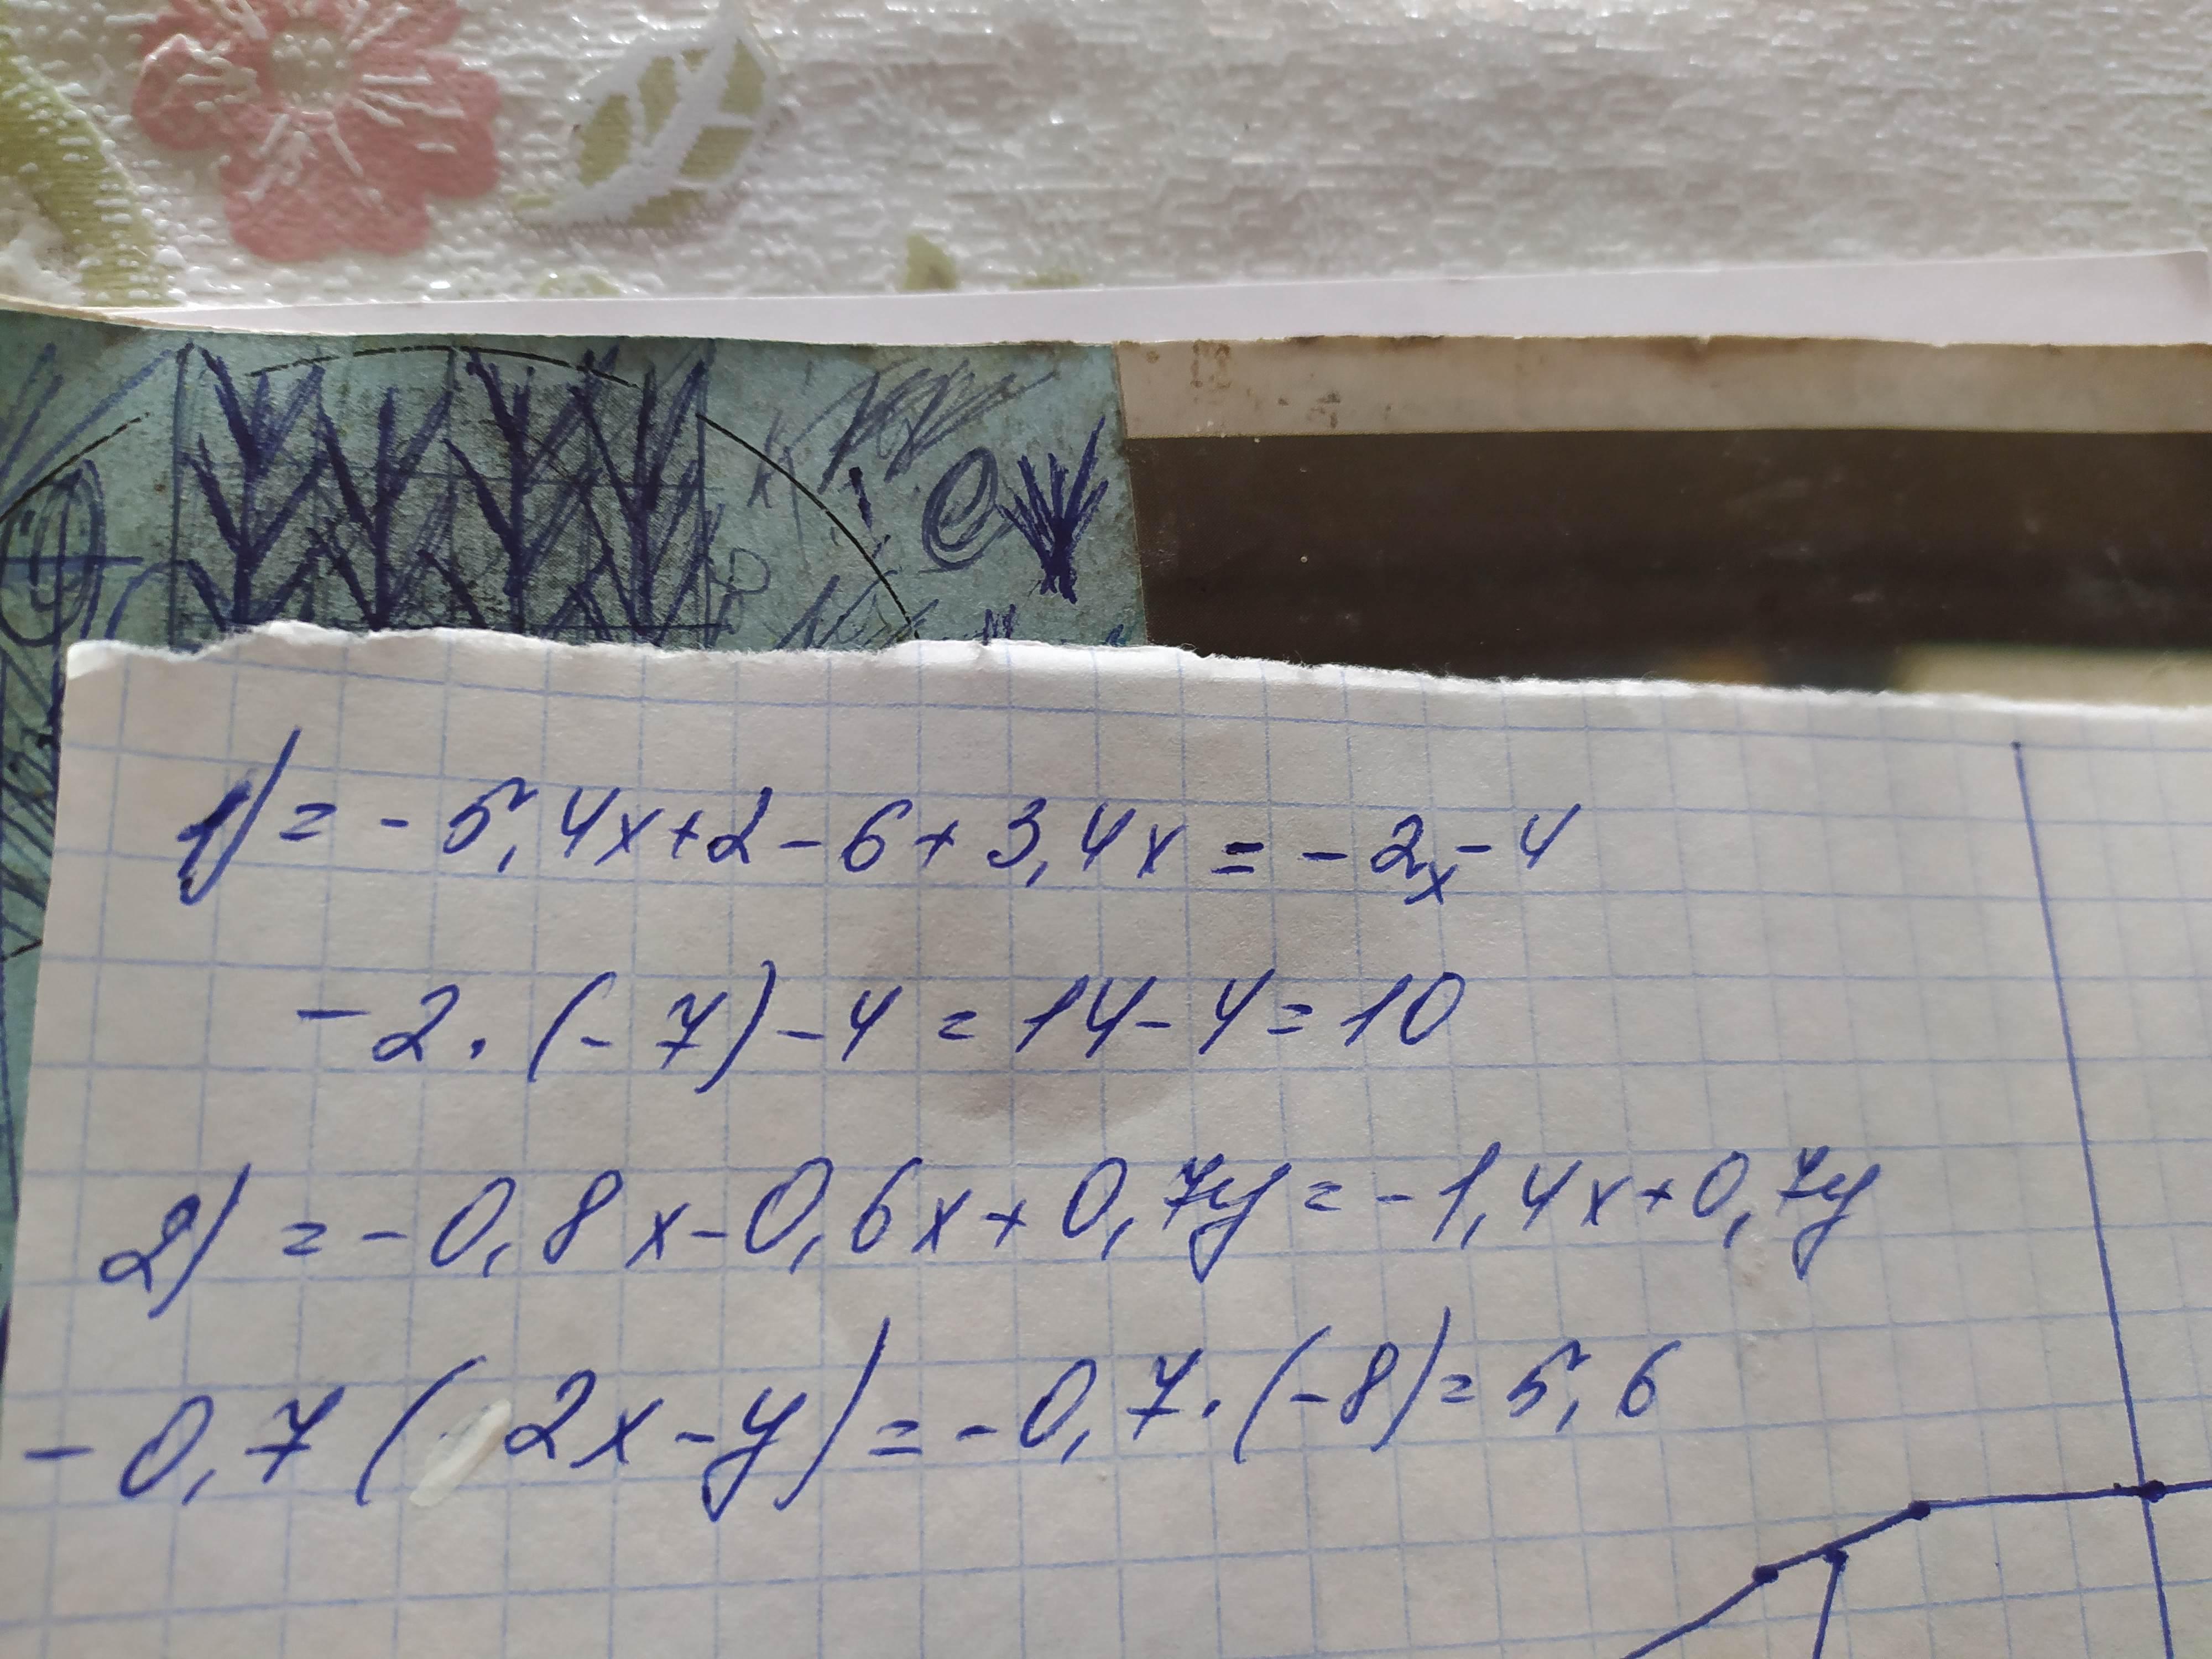 1) = - 5,4x + 2 - 6 + 3,4x = - 2x - 4
- 2 . (- 7) - 4 = 14 - 4 = 10
2) = - 0,8x - 0,6x + 0,7y = - 1,4x + 0,7y
- 0,7 ( 2x - y) = - 0,7 . (- 8) = 5,6